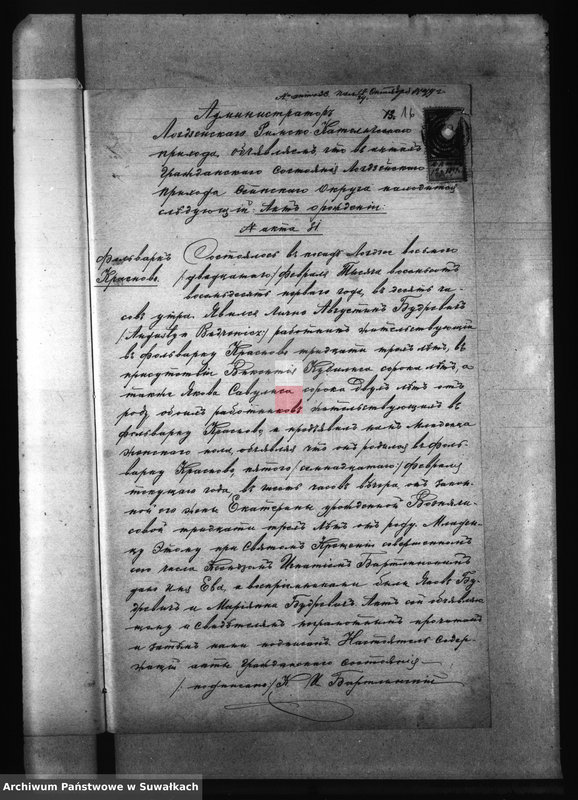 Администраторъ 13. 16
Лоздзейскаго Римско Католическаго
прихода, объявляетъ что въ актахъ
Гражданскаго Состоянія Лоздзейскаго
прихода Сейнскаго Округа находится
слѣдующій: Актъ о рожденіи:
№ акта 81
Фольваркъ
Красново.
Состоялось въ посадѣ Лоздзее восьмого
/двадцатого/ февраля Тысяча восемьсотъ
восемьдесятъ перваго года, въ десять ча-
совъ утра. Явился лично Августинъ Будревичъ
/Augustyn Budrewicz/ работникъ жительствующій
въ фольварку Красново тридцати трехъ лѣтъ, въ
присутствіи Викентія сорока лѣтъ, а
также Якова сорока двухъ лѣтъ отъ
роду обоихъ работниковъ жительствующихъ въ
фольварку Красново, и предъявилъ намъ младенца
женскаго пола, объявляя что онъ родился въ Фоль-
варку Красново, пятого /семнадцатаго/ февраля
текущаго года, въ часовъ вечера, отъ закон-
ной его жены Екатерины урожденной
тридцати трехъ лѣтъ отъ роду. Младен-
цу Этому при Святомъ Крещеніи совершенномъ
сего числа Ксендзомъ Игнатіемъ Бартлинскимъ
дано имя Ева, а воспріемниками были Яковъ Бу-
древичъ и Маріянна Будревичъ. Актъ сей объявляю-
щему и свидѣтелямъ неграмотнымъ прочитанъ
и затѣмъ нами подписанъ. Настоятель Содер-
жащій акты Гражданскаго состоянія
/подписано/ К. И. Бартлинскій
Archiwum Państwowe w Suwałkach